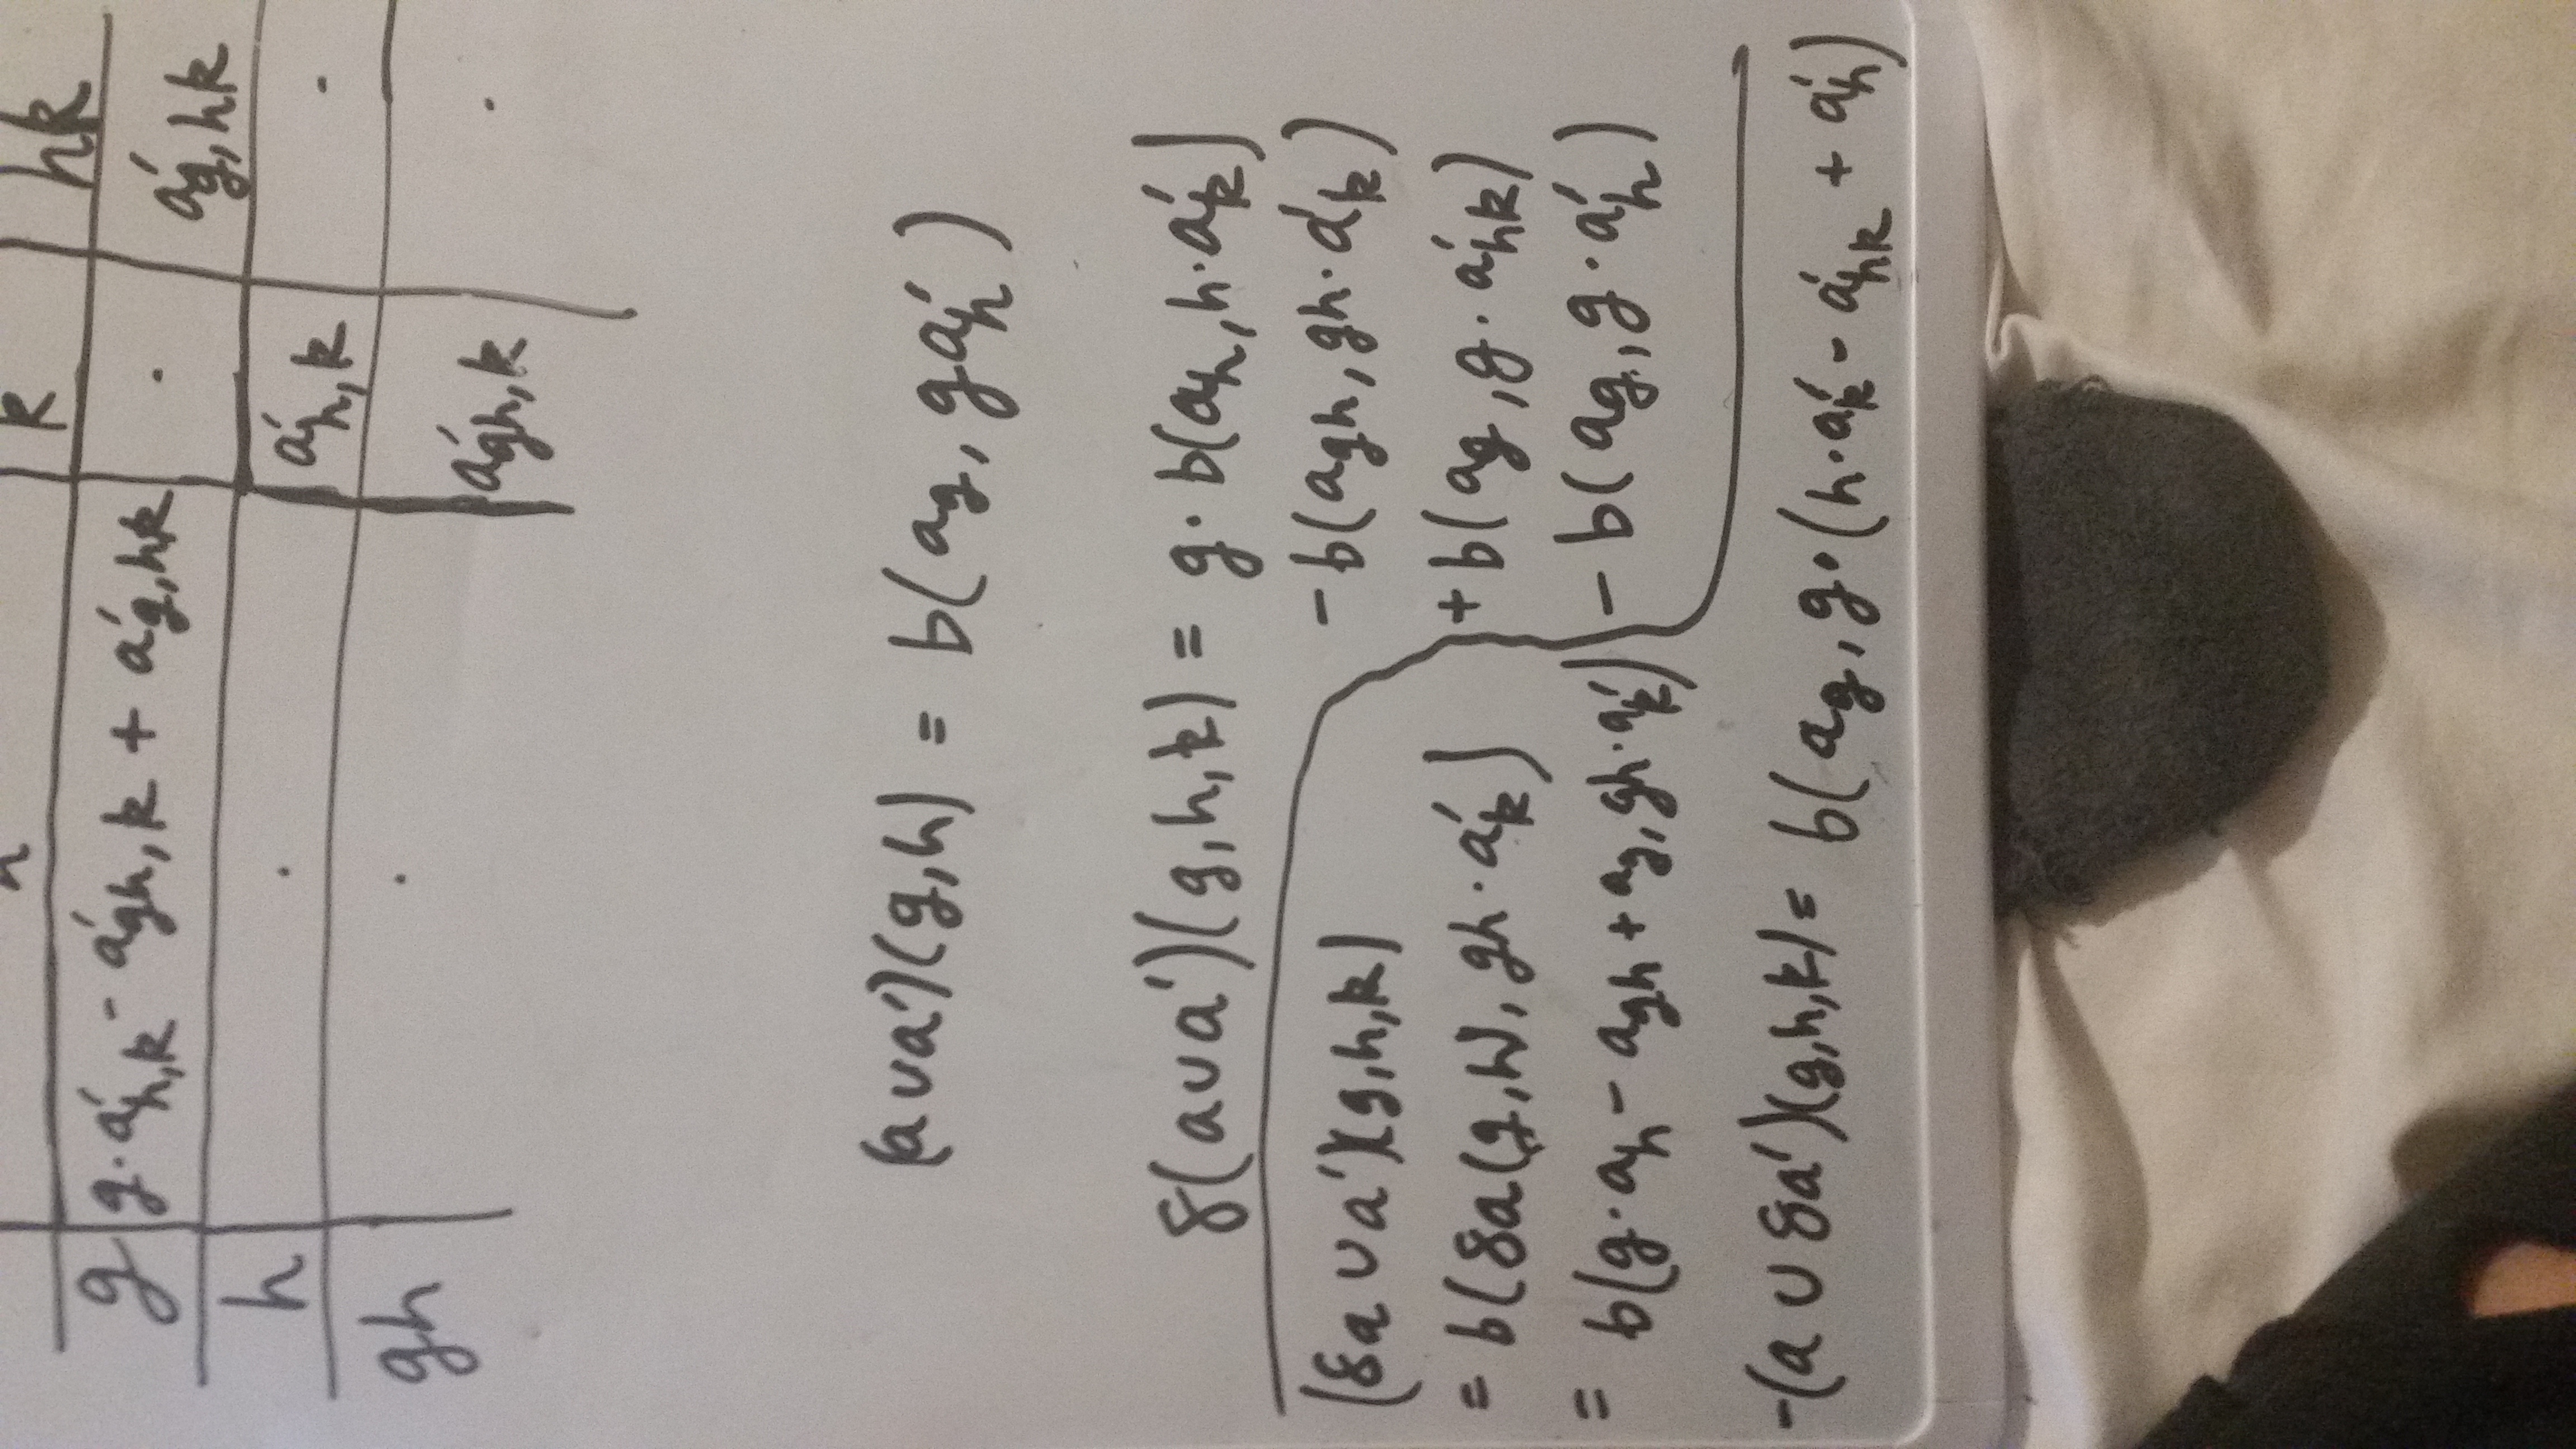 k hk
g g · a'h,k - a'gh,k + a'g,hk · a'g,hk
h · a'h,k ·
gh · a'gh,k ·
(a∪a')(g,h) = b(ag, ga'h)
δ(a∪a')(g,h,k) = g · b(ah, h·a'k)
- b(agh, gh·a'k)
+ b(ag, g·a'hk)
- b(ag, g·a'h)
(δa ∪ a')(g,h,k)
= b(δa(g,h), gh·a'k)
= b(g·ah - agh + ag, gh·a'k)
-(a ∪ δa')(g,h,k) = b(ag, g·(h·a'k - a'hk + a'h)